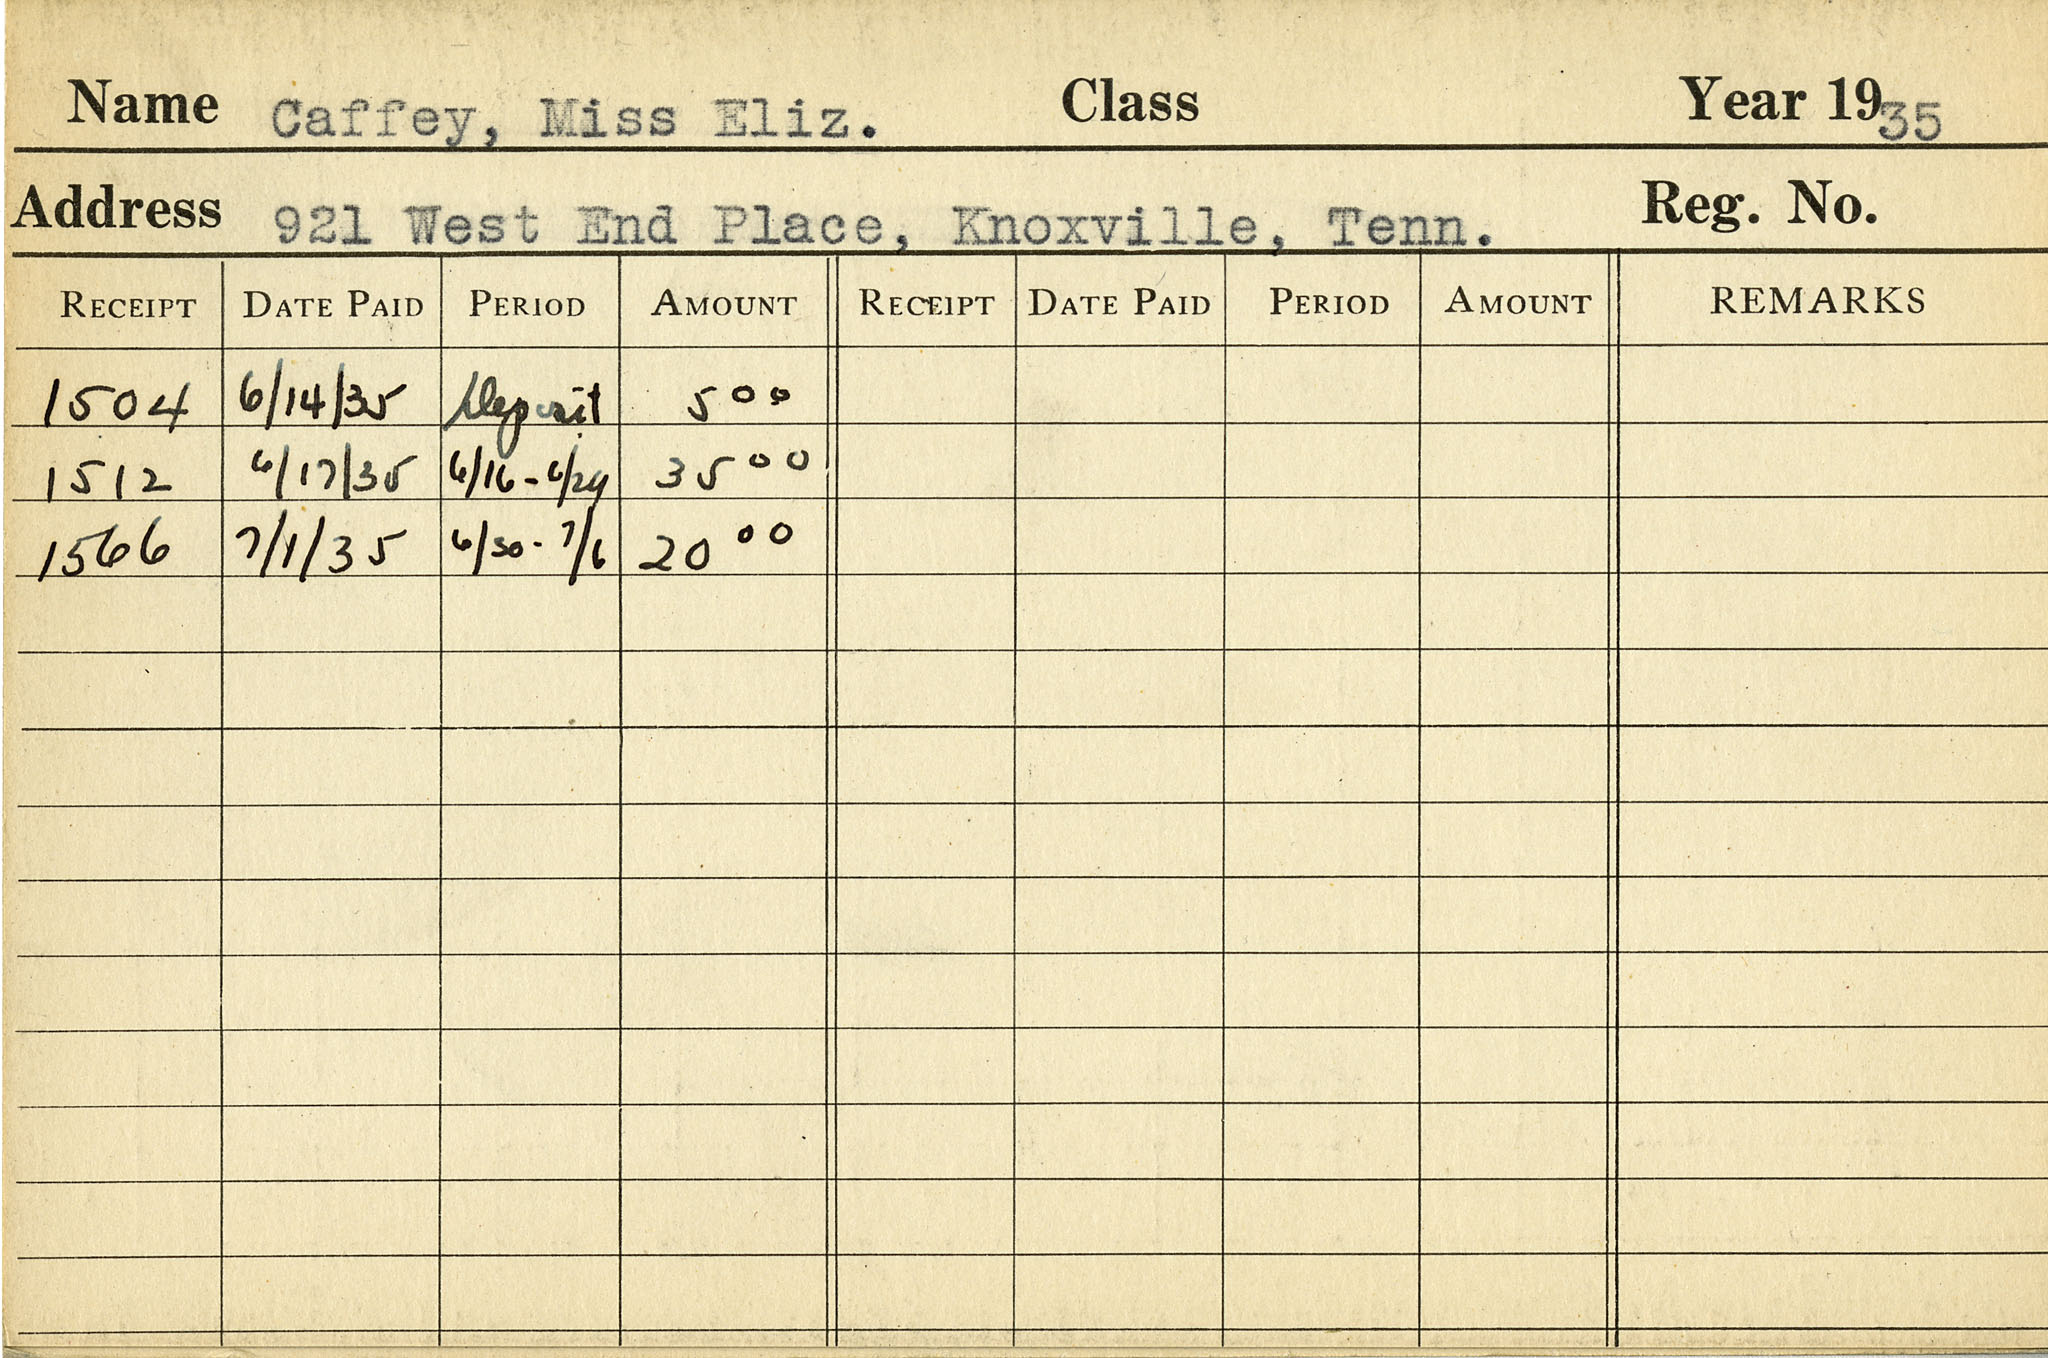 Name Caffey, Miss Eliz. Class Year 1935
Address 921 West End Place, Knoxville, Tenn. Reg. No.
RECEIPT DATE PAID PERIOD AMOUNT RECEIPT DATE PAID PERIOD AMOUNT REMARKS
1504 6/14/35 Deposit 5 00
1512 6/17/35 6/16-6/29 35 00
1566 7/1/35 6/30-7/6 20 00